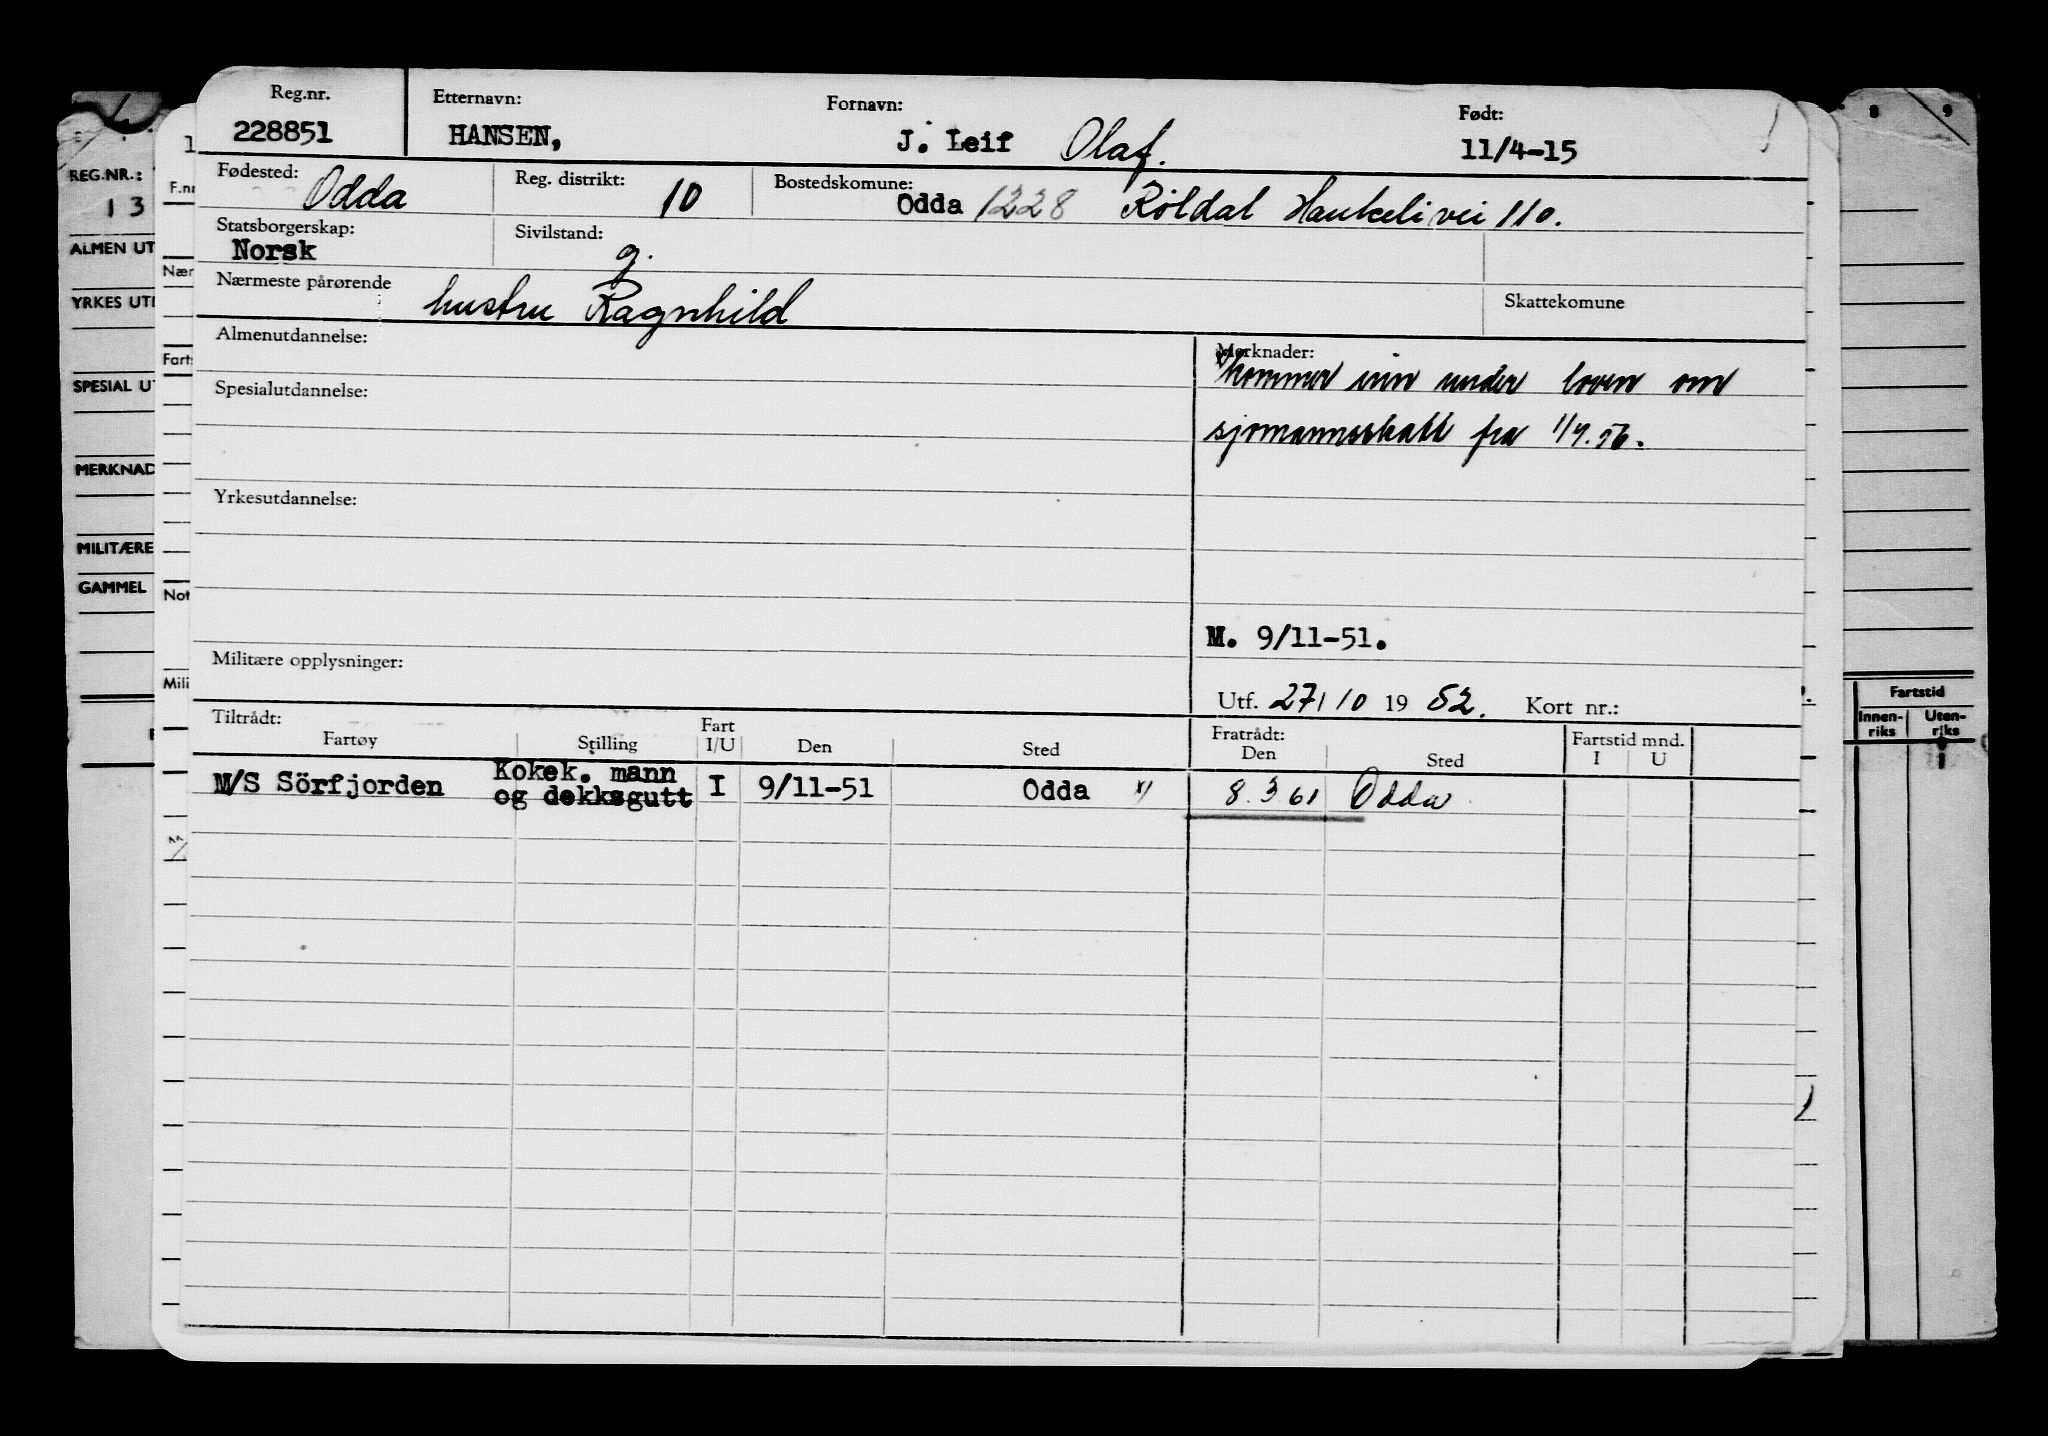 Reg.nr. Etternavn: Fornavn: Født:
228851 HANSEN, J. Leif Olaf. 11/4-15
Fødested: Odda Reg. distrikt: 10 Bostedskomune: Odda 1228 Röldal Haukelivei 110.
Statsborgerskap: Norsk Sivilstand: g.
Nærmeste pårørende hustru Ragnhild Skattekomune
Almenutdannelse: Merknader:
kommer inn under loven om
Spesialutdannelse:
sjømannsskatt fra 1/7.56.
Yrkesutdannelse:
M. 9/11-51.
Militære opplysninger:
Utf. 27/10 1952. Kort nr.:
Tiltrådt: Fart Fratrådt: Fartstid mnd.
Fartøy Stilling I/U Den Sted Den Sted I U
M/S Sörfjorden Kokek. mann I 9/11-51 Odda x) 8.3 61 Odda
og dekksgutt
REG.NR.:
13
ALMEN UT
YRKES UT
SPESIAL UT
MERKNAD
MILITÆRE
GAMMEL
1
F.nr
Nær
Farts
Not
Mili
8 9
Fartstid
Innen-riks Uten-riks